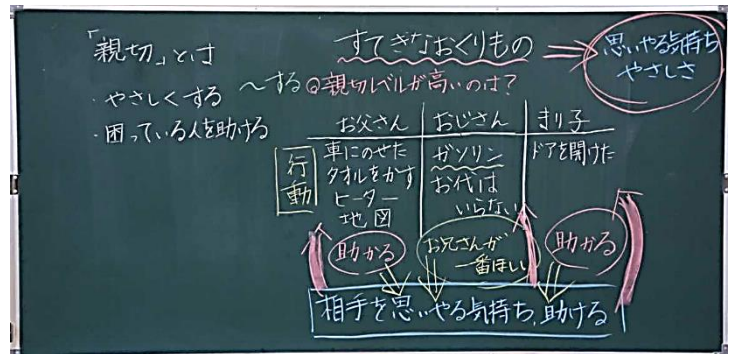 「親切」とは
・やさしくする
・困っている人を助ける
～する
すてきなおくりもの
思いやる気持ち
やさしさ
◎親切レベルが高いのは?
お父さん
おじさん
まり子
行動
車にのせた
タオルをかす
ヒーター
地図
ガソリン
お代は
いらない
ドアを開けた
助かる
お兄さんが
一番ほしい
助かる
相手を思いやる気持ち、助ける